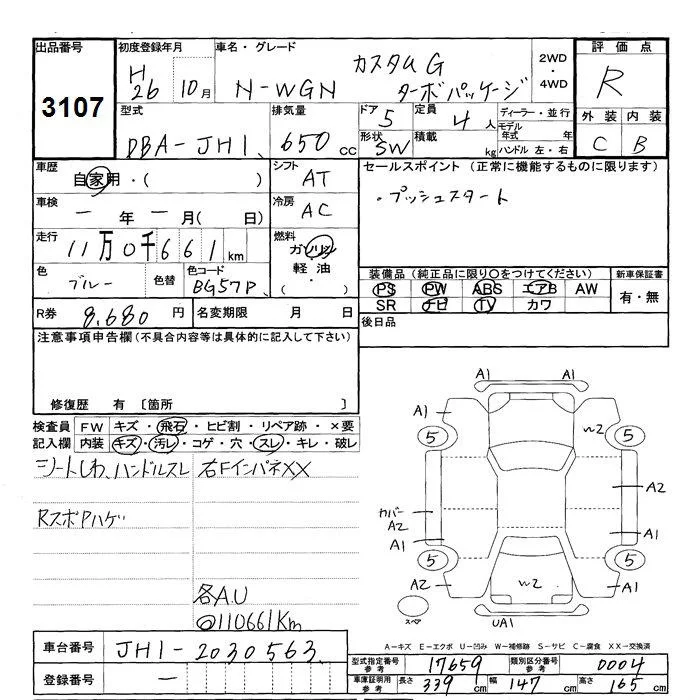 出品番号 初度登録年月 車名・グレード 2WD・4WD 評価点
3107 H26 10月 N-WGN カスタムG ターボパッケージ R
型式 排気量 ドア 5 定員 4人 ディーラー・並行 外装 内装
DBA-JH1 650cc 形状 SW 積載 kg モデル年式 年 ハンドル 左・右 C B
車歴 自家用・( ) シフト AT セールスポイント (正常に機能するものに限ります)
車検 - 年 - 月( 日) 冷房 AC ・プッシュスタート
走行 11万0千661km 燃料 ガソリン・軽油・( )
色 ブルー 色替 色コード BG57P 装備品 (純正品に限り○をつけてください) 新車保証書
PS PW ABS エアB AW 有・無
SR ナビ TV カワ
R券 8,680円 名変期限 月 日 後日品
注意事項申告欄(不具合内容等は具体的に記入して下さい)
修復歴 有 〔箇所 〕
検査員 FW キズ・飛石・ヒビ割・リペア跡・×要
記入欄 内装 キズ・汚レ・コゲ・穴・スレ・キレ・破レ
シートしわ、ハンドルスレ 右FインパネXX
RスポPハゲ
各A.U
@110661Km
A1 A1
A1 W2
5 5
A2
カバー A2
A1 A1
5 5
A2 W2 A2
スペア UA1
A-キズ E-エクボ U-凹み W-補修跡 S-サビ C-腐食 XX-交換済
車台番号 JH1-2030563 型式指定番号 参考 17659 類別区分番号 参考 0004
登録番号 - 車庫証明用 参考 長さ 339cm 幅 147cm 高さ 165cm